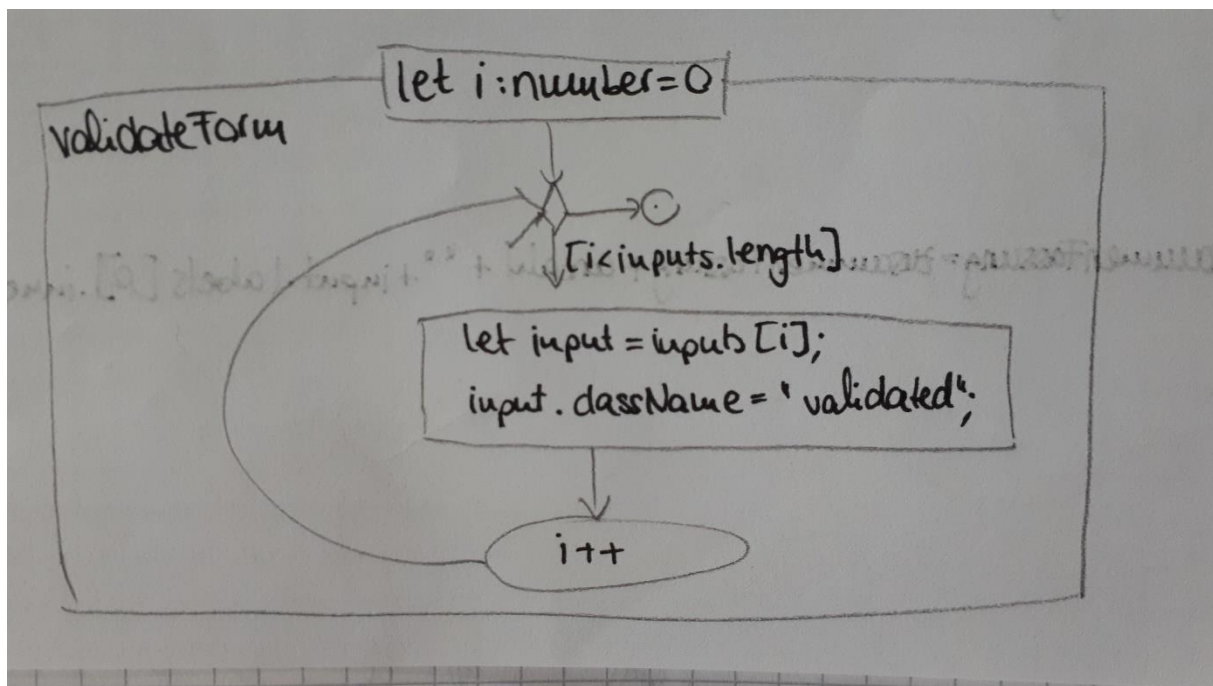 let i:number=0
validateForm
[i<inputs.length]
let input = inputs[i];
input.className = "validated";
i++